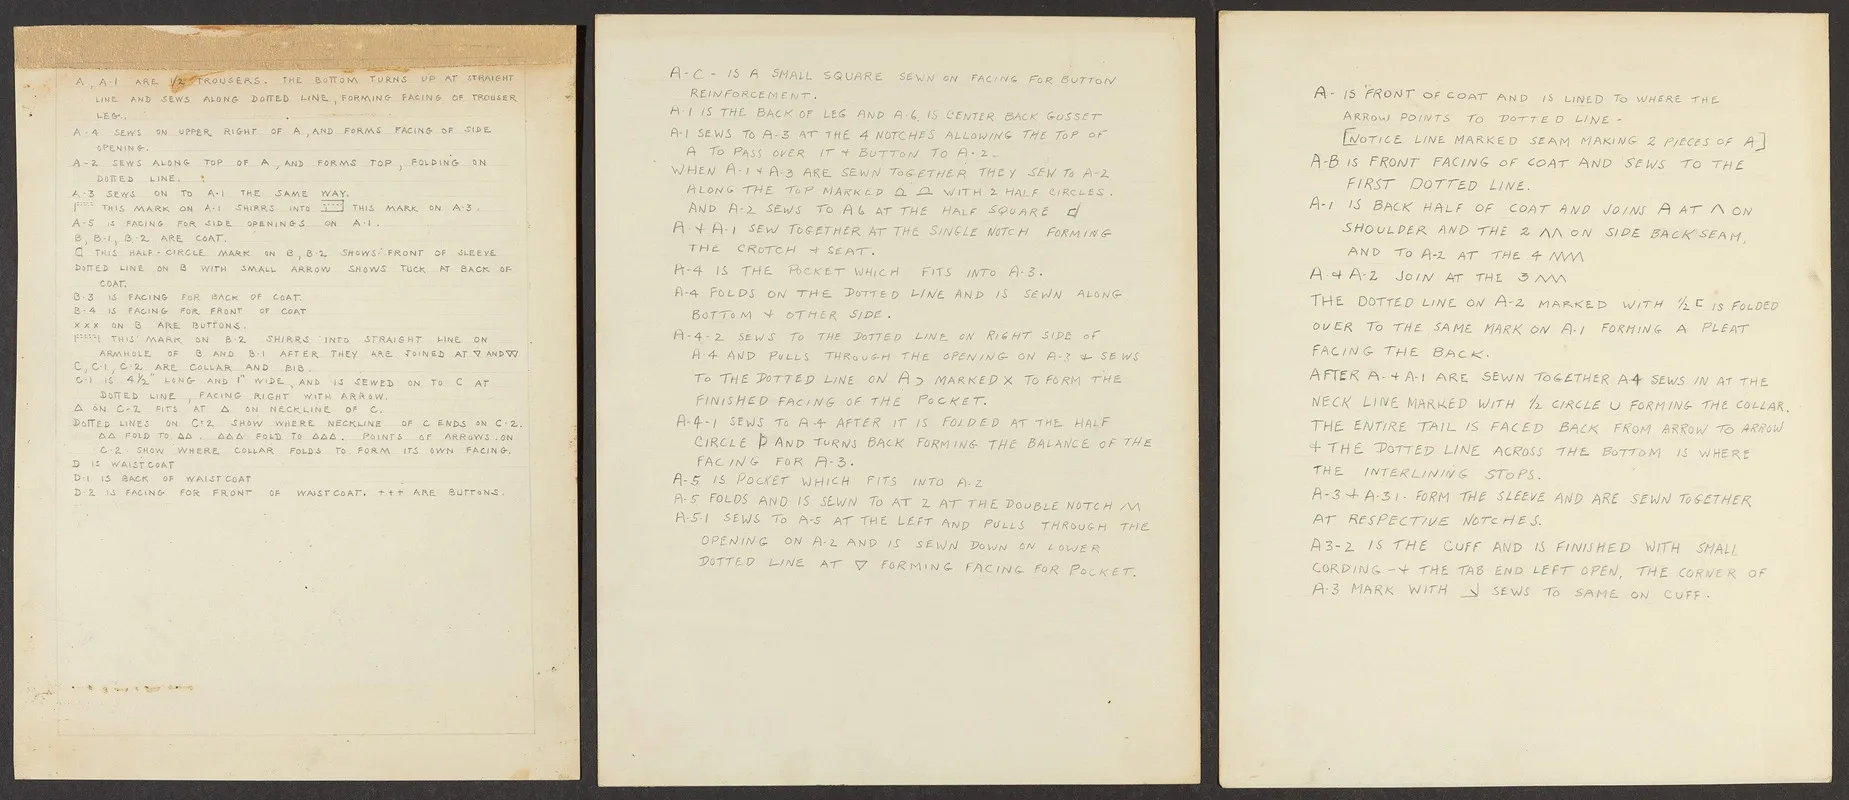 A, A-1 ARE 1/2 TROUSERS. THE BOTTOM TURNS UP AT STRAIGHT
LINE AND SEWS ALONG DOTTED LINE, FORMING FACING OF TROUSER
LEG.
A-4 SEWS ON UPPER RIGHT OF A, AND FORMS FACING OF SIDE
OPENING.
A-2 SEWS ALONG TOP OF A, AND FORMS TOP, FOLDING ON
DOTTED LINE.
A-3 SEWS ON TO A-1 THE SAME WAY.
THIS MARK ON A-1 SHIRRS INTO THIS MARK ON A-3.
A-5 IS FACING FOR SIDE OPENINGS ON A-1.
B, B-1, B-2 ARE COAT.
THIS HALF-CIRCLE MARK ON B, B-2 SHOWS FRONT OF SLEEVE
DOTTED LINE ON B WITH SMALL ARROW SHOWS TUCK AT BACK OF
COAT.
B-3 IS FACING FOR BACK OF COAT.
B-4 IS FACING FOR FRONT OF COAT
XXX ON B ARE BUTTONS.
THIS MARK ON B-2 SHIRRS INTO STRAIGHT LINE ON
ARMHOLE OF B AND B-1 AFTER THEY ARE JOINED AT ▽ AND ▽▽
C, C-1, C-2 ARE COLLAR AND BIB.
C-1 IS 4 1/2" LONG AND 1" WIDE, AND IS SEWED ON TO C AT
DOTTED LINE, FACING RIGHT WITH ARROW.
△ ON C-2 FITS AT △ ON NECKLINE OF C.
DOTTED LINES ON C-2 SHOW WHERE NECKLINE OF C ENDS ON C-2.
△△ FOLD TO △△. △△△ FOLD TO △△△. POINTS OF ARROWS ON
C-2 SHOW WHERE COLLAR FOLDS TO FORM ITS OWN FACING.
D IS WAISTCOAT
D-1 IS BACK OF WAISTCOAT
D-2 IS FACING FOR FRONT OF WAISTCOAT. +++ ARE BUTTONS.
A-C- IS A SMALL SQUARE SEWN ON FACING FOR BUTTON
REINFORCEMENT.
A-1 IS THE BACK OF LEG AND A-6, IS CENTER BACK GUSSET
A-1 SEWS TO A-3 AT THE 4 NOTCHES ALLOWING THE TOP OF
A TO PASS OVER IT + BUTTON TO A-2.
WHEN A-1 + A-3 ARE SEWN TOGETHER THEY SEW TO A-2
ALONG THE TOP MARKED WITH 2 HALF CIRCLES.
AND A-2 SEWS TO A6 AT THE HALF SQUARE
A + A-1 SEW TOGETHER AT THE SINGLE NOTCH FORMING
THE CROTCH + SEAT.
A-4 IS THE POCKET WHICH FITS INTO A-3.
A-4 FOLDS ON THE DOTTED LINE AND IS SEWN ALONG
BOTTOM + OTHER SIDE.
A-4-2 SEWS TO THE DOTTED LINE ON RIGHT SIDE OF
A-4 AND PULLS THROUGH THE OPENING ON A-3 + SEWS
TO THE DOTTED LINE ON A3 MARKED X TO FORM THE
FINISHED FACING OF THE POCKET.
A-4-1 SEWS TO A-4 AFTER IT IS FOLDED AT THE HALF
CIRCLE AND TURNS BACK FORMING THE BALANCE OF THE
FACING FOR A-3.
A-5 IS POCKET WHICH FITS INTO A-2
A-5 FOLDS AND IS SEWN TO AT 2 AT THE DOUBLE NOTCH ʌʌ
A-5-1 SEWS TO A-5 AT THE LEFT AND PULLS THROUGH THE
OPENING ON A-2 AND IS SEWN DOWN ON LOWER
DOTTED LINE AT ▽ FORMING FACING FOR POCKET.
A- IS FRONT OF COAT AND IS LINED TO WHERE THE
ARROW POINTS TO DOTTED LINE -
[NOTICE LINE MARKED SEAM MAKING 2 PIECES OF A]
A-B IS FRONT FACING OF COAT AND SEWS TO THE
FIRST DOTTED LINE.
A-1 IS BACK HALF OF COAT AND JOINS A AT ʌ ON
SHOULDER AND THE 2 ʌʌ ON SIDE BACK SEAM,
AND TO A-2 AT THE 4 ʌʌʌʌ
A + A-2 JOIN AT THE 3 ʌʌʌ
THE DOTTED LINE ON A-2 MARKED WITH 1/2 ⊏ IS FOLDED
OVER TO THE SAME MARK ON A-1 FORMING A PLEAT
FACING THE BACK.
AFTER A- + A-1 ARE SEWN TOGETHER A4 SEWS IN AT THE
NECK LINE MARKED WITH 1/2 CIRCLE U FORMING THE COLLAR.
THE ENTIRE TAIL IS FACED BACK FROM ARROW TO ARROW
+ THE DOTTED LINE ACROSS THE BOTTOM IS WHERE
THE INTERLINING STOPS.
A-3 + A-31. FORM THE SLEEVE AND ARE SEWN TOGETHER
AT RESPECTIVE NOTCHES.
A3-2 IS THE CUFF AND IS FINISHED WITH SMALL
CORDING -+ THE TAB END LEFT OPEN, THE CORNER OF
A-3 MARK WITH SEWS TO SAME ON CUFF.